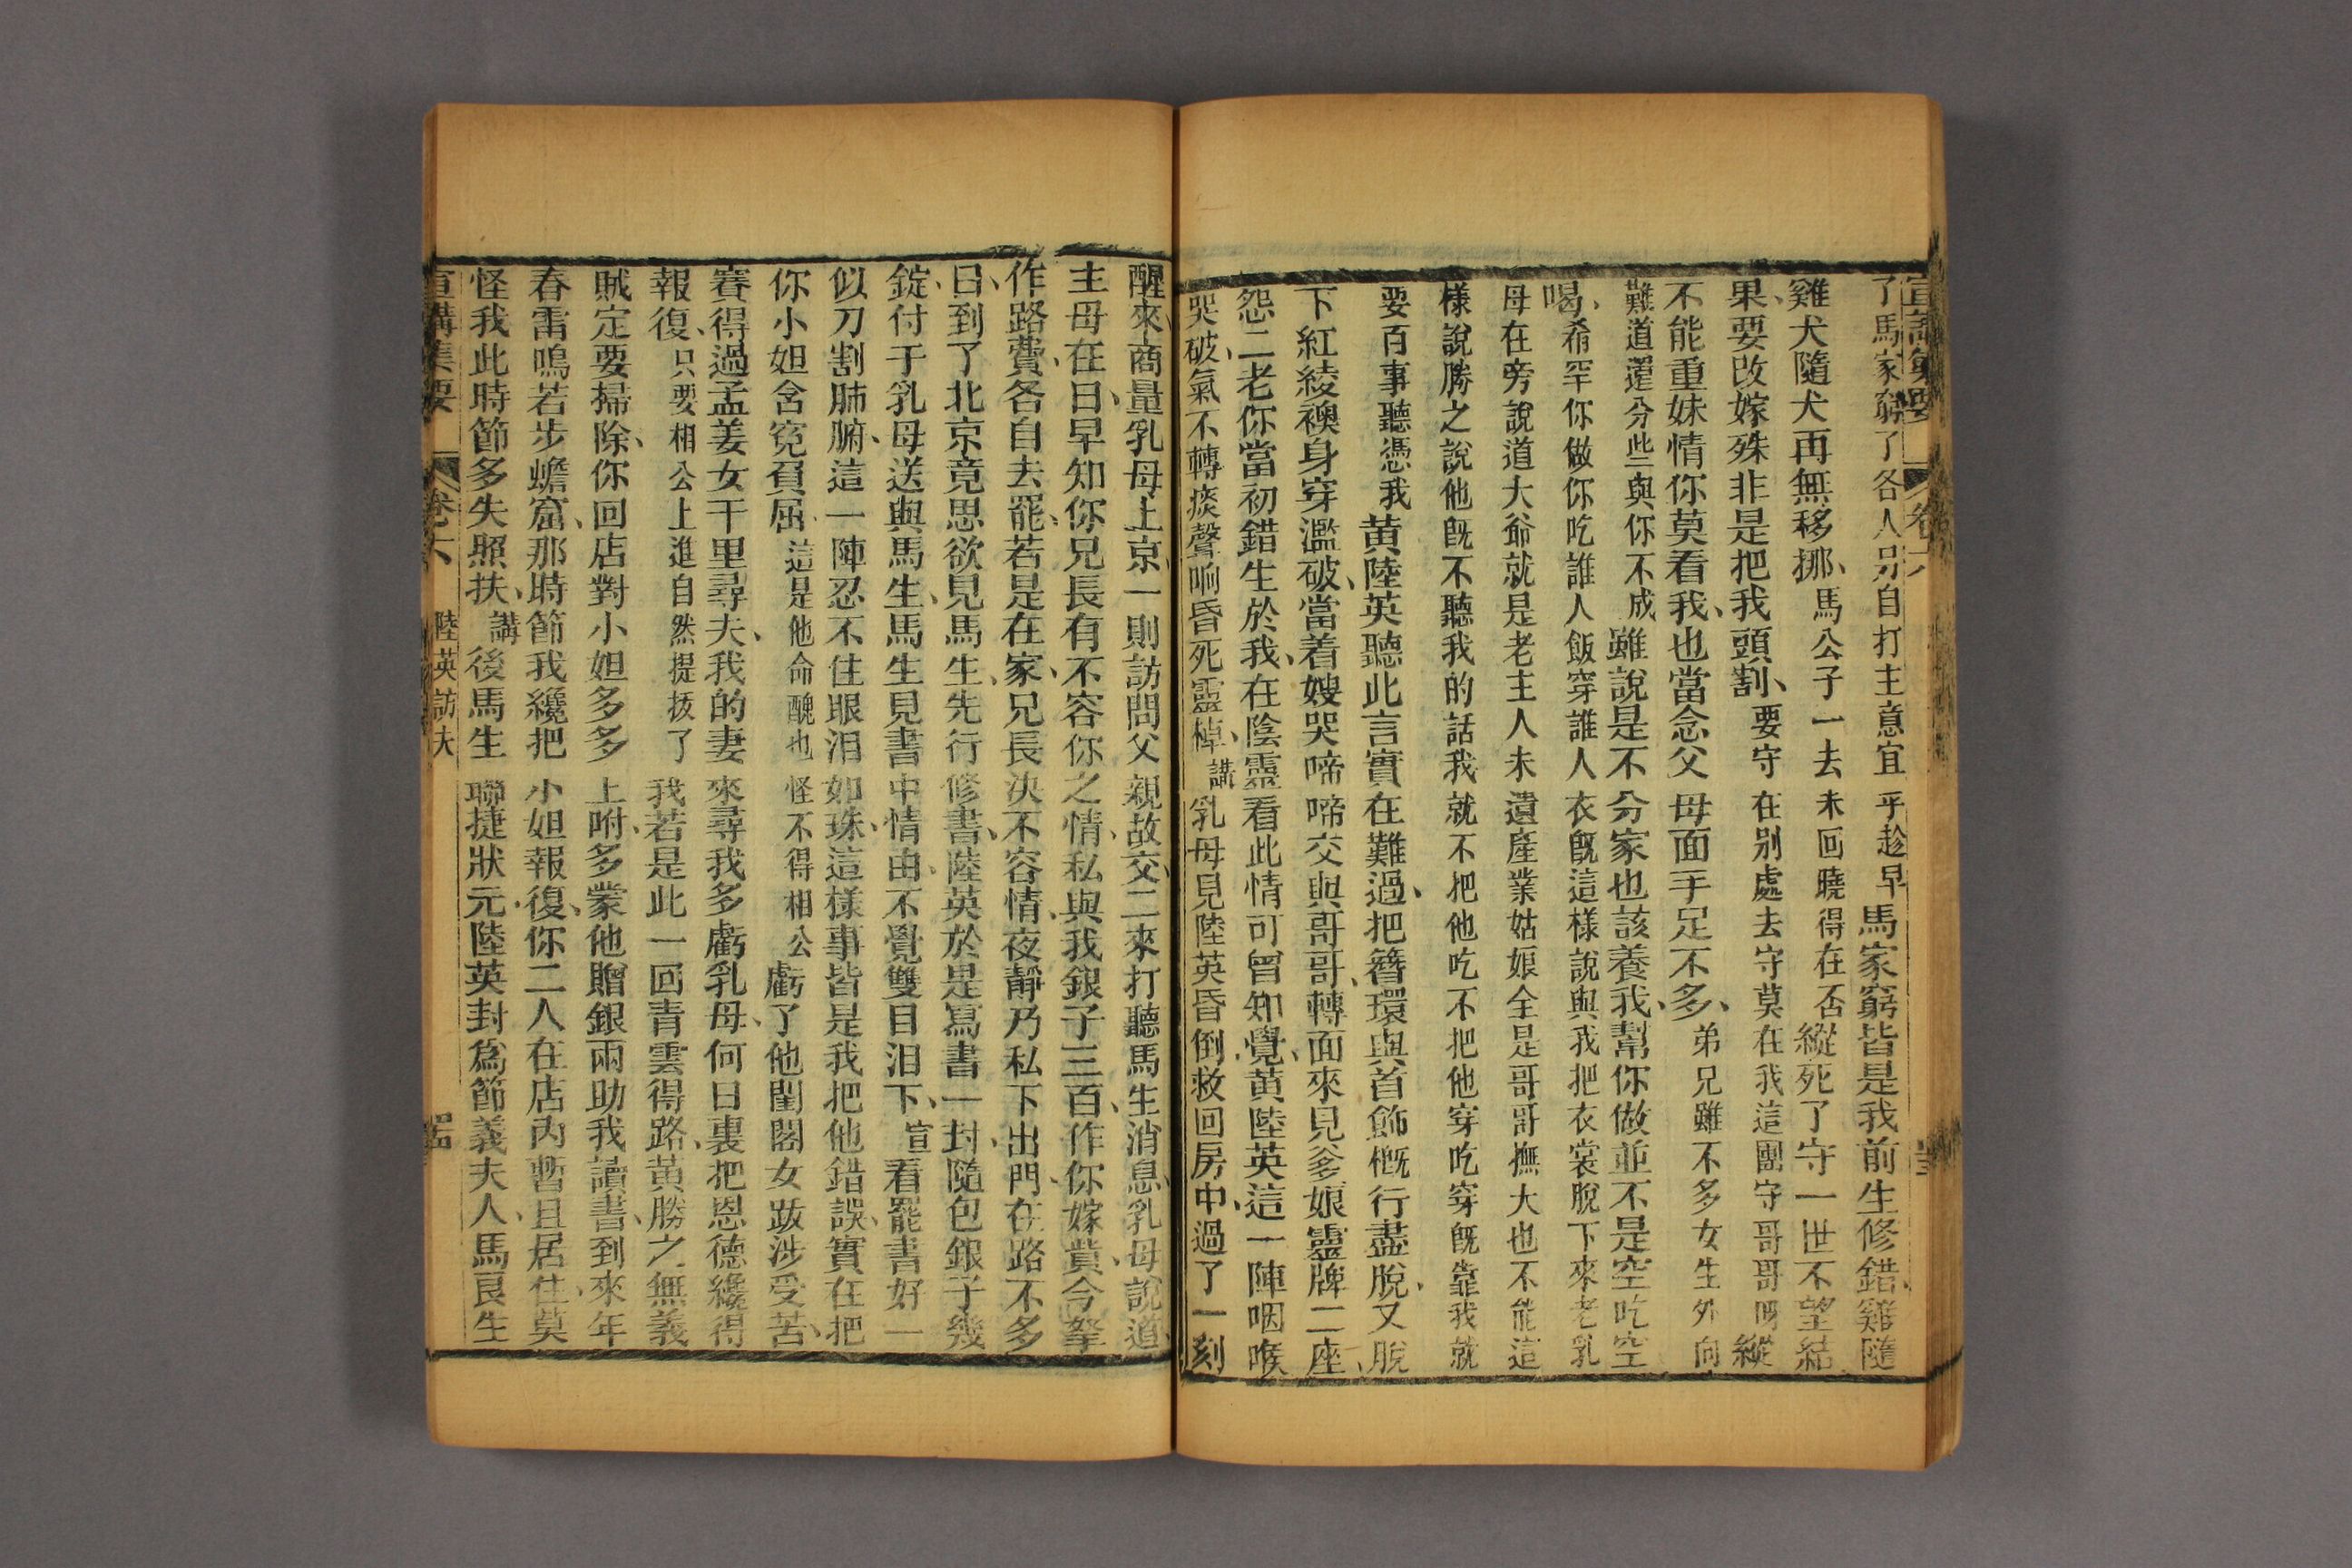 宣講集要 卷六
了馬家窮了各人另自打主意宜乎趁早馬家窮皆是我前生修錯雞隨
雞犬隨犬再無移挪馬公子一去未回曉得在否縱死了守一世不望結
果要改嫁殊非是把我頭割要守在别處去守莫在我這團守哥哥嗎縱
不能重妹情你莫看我也當念父母面手足不多弟兄雖不多女生外向
難道還分些與你不成雖說是不分家也該養我幫你做並不是空吃空
喝希罕你做你吃誰人飯穿誰人衣旣這樣說與我把衣裳脫下來老乳
母在旁說道大爺就是老主人未遺產業姑娘全是哥哥撫大也不能這
樣說勝之說他旣不聽我的話我就不把他吃不把他穿吃穿旣靠我就
要百事聽憑我黄陸英聽此言實在難過把簪環與首飾槪行盡脫又脫
下紅綾襖身穿濫破當着嫂哭啼啼交與哥哥轉面來見爹娘靈牌二座
怨二老你當初錯生於我在陰靈看此情可曾知覺黄陸英這一陣咽喉
哭破氣不轉痰聲响昏死靈棹講乳母見陸英昏倒救回房中過了一刻
醒來商量乳母上京一則訪問父親故交二來打聽馬生消息乳母說道
主母在日早知你兄長有不容你之情私與我銀子三百作你嫁貲今拏
作路費各自去罷若是在家兄長決不容情夜靜乃私下出門在路不多
日到了北京竟思欲見馬生先行修書陸英於是寫書一封隨包銀子幾
錠付于乳母送與馬生馬生見書中情由不覺雙目泪下宣看罷書好一
似刀割肺腑這一陣忍不住眼泪如珠這樣事皆是我把他錯誤實在把
你小姐含寃負屈這是他命醜也怪不得相公虧了他閨閣女跋涉受苦
賽得過孟姜女千里尋夫我的妻來尋我多虧乳母何日裏把恩德纔得
報復只要相公上進自然提拔了我若是此一回青雲得路黄勝之無義
賊定要掃除你回店對小姐多多上咐多蒙他贈銀兩助我讀書到來年
春雷鳴若步蟾窟那時節我纔把小姐報復你二人在店內暫且居住莫
怪我此時節多失照扶講後馬生聯捷狀元陸英封爲節義夫人馬良生
宣講集要 卷六 陸英訪夫